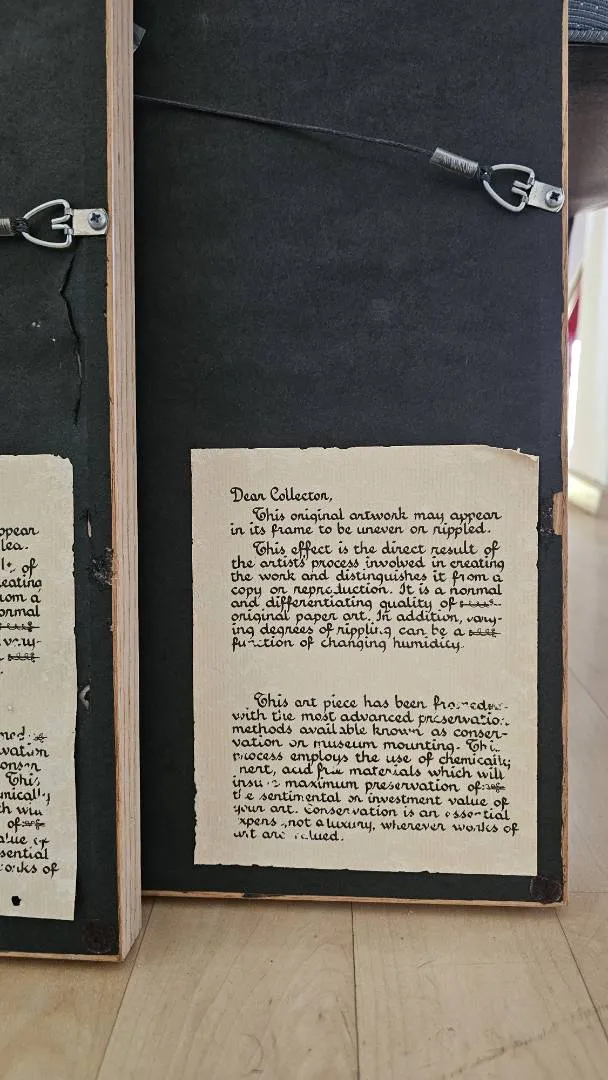 ppear
lea.
of
eating
om a
ormal
vary-
onser-
This
mically
h will
of
value of
sential
orks of
Dear Collector,
This original artwork may appear
in its frame to be uneven or rippled.
This effect is the direct result of
the artists' process involved in creating
the work and distinguishes it from a
copy or reproduction. It is a normal
and differentiating quality of
original paper art. In addition, vary-
ing degrees of rippling can be a
function of changing humidity.
This art piece has been framed
with the most advanced preservation
methods available known as conser-
vation or museum mounting. This
process employs the use of chemically
inert, acid free materials which will
insure maximum preservation of
the sentimental or investment value of
your art. Conservation is an essential
expense, not a luxury, wherever works of
art are valued.